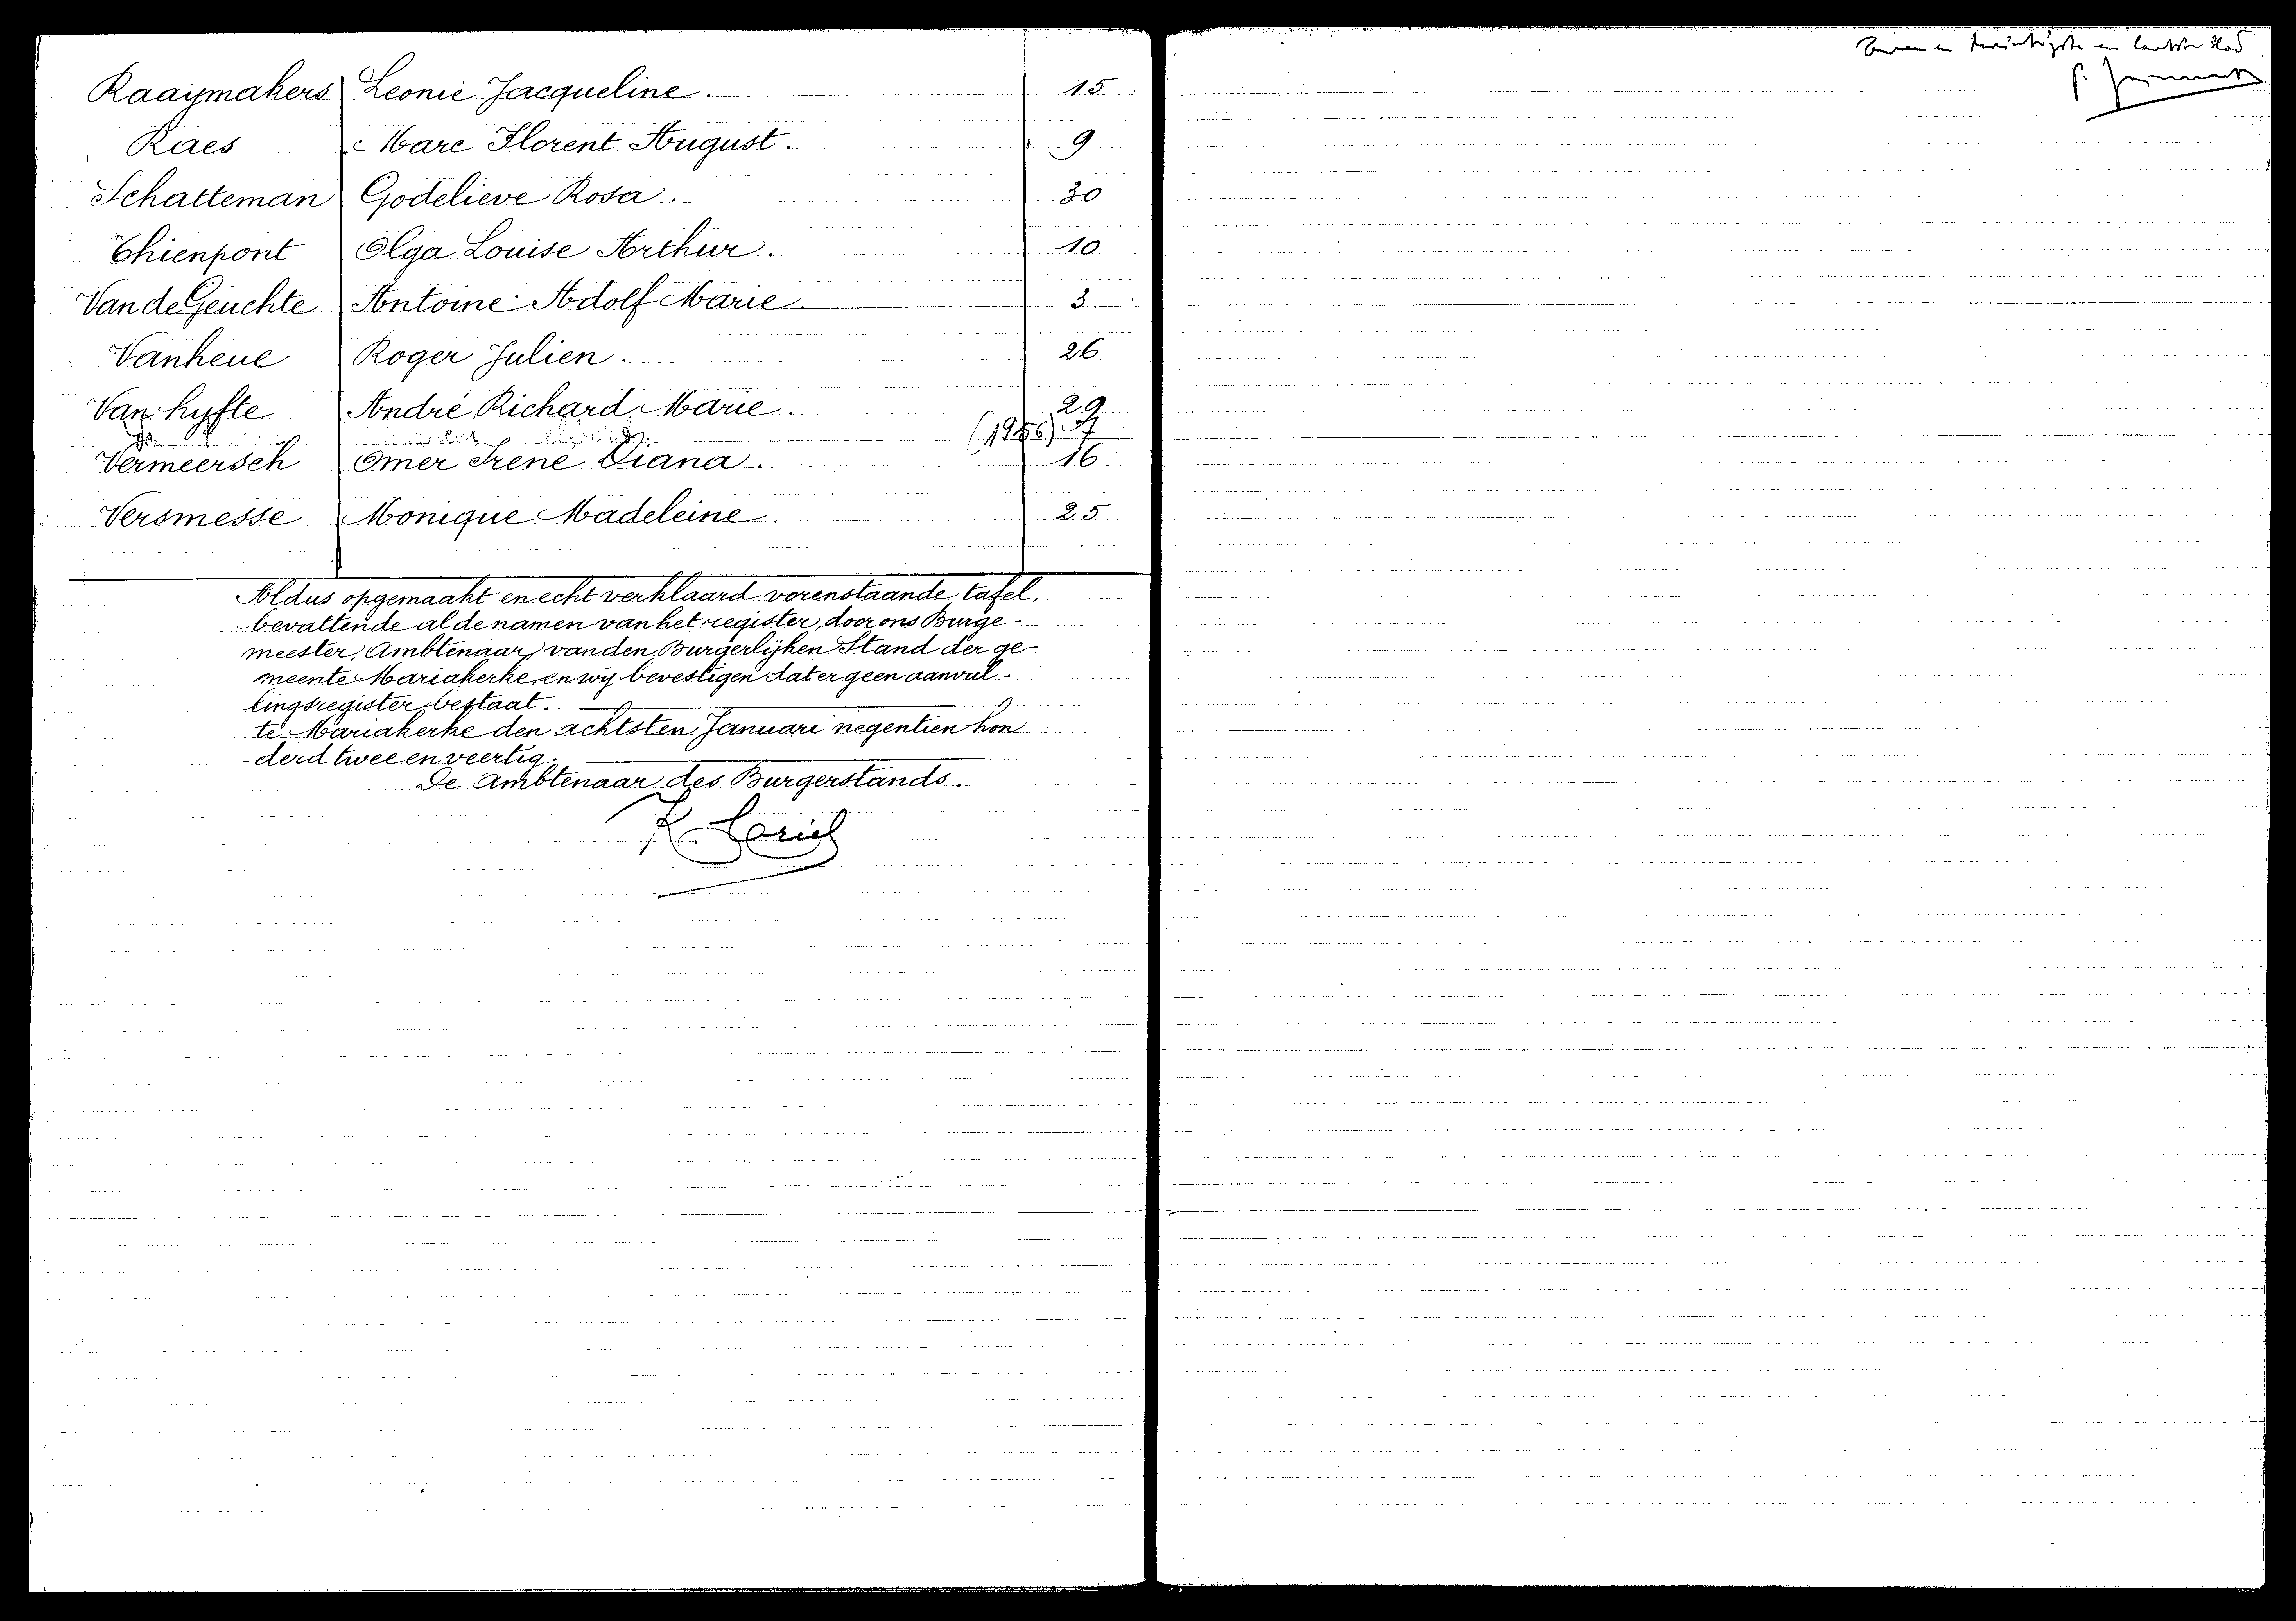 Raaijmakers Leonie Jacqueline. 15
Raes Marc Florent August. 9
Schatteman Godelieve Rosa. 30
Thienpont Olga Louise Arthur. 10
Van de Geuchte Antoine Adolf Marie. 3
Vanheue Roger Julien. 26
Van hyfte André Richard Marie. 29
Vermeersch Omer Irene Diana. 16
Versmesse Monique Madeleine. 25
Aldus opgemaakt en echt verklaard vorenstaande tafel,
bevattende al de namen van het register, door ons Burge-
meester, Ambtenaar van den Burgerlijken Stand der ge-
meente Mariakerke, en wij bevestigen dat er geen aanvul-
lingsregister bestaat.
te Mariakerke den achtsten Januari negentien hon
-derd twee en veertig.
De Ambtenaar des Burgerstands.
en twintigste en laatste blad